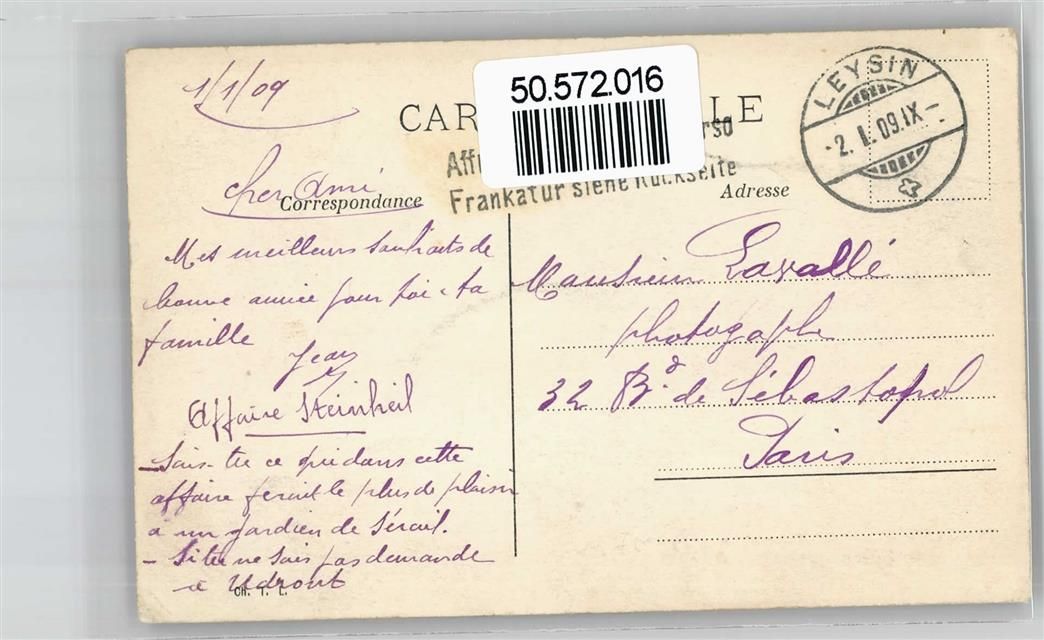 1/1/09
50.572.016
CAR LLE
Affr rso
Frankatur siehe Rückseite
LEYSIN
-2. I. 09. IX -
Correspondance
Adresse
Cher Ami
Mes meilleurs souhaits de
bonne année pour toi & ta
famille
Jean
Affaire Steinheil
- Sais-tu ce qui dans cette
affaire ferait le plus de plaisir
à un gardien de Sérail.
- Si tu ne sais pas demande
à
CH. T. L.
Monsieur Lavallé
photographe
32 Bd de Sébastopol
Paris